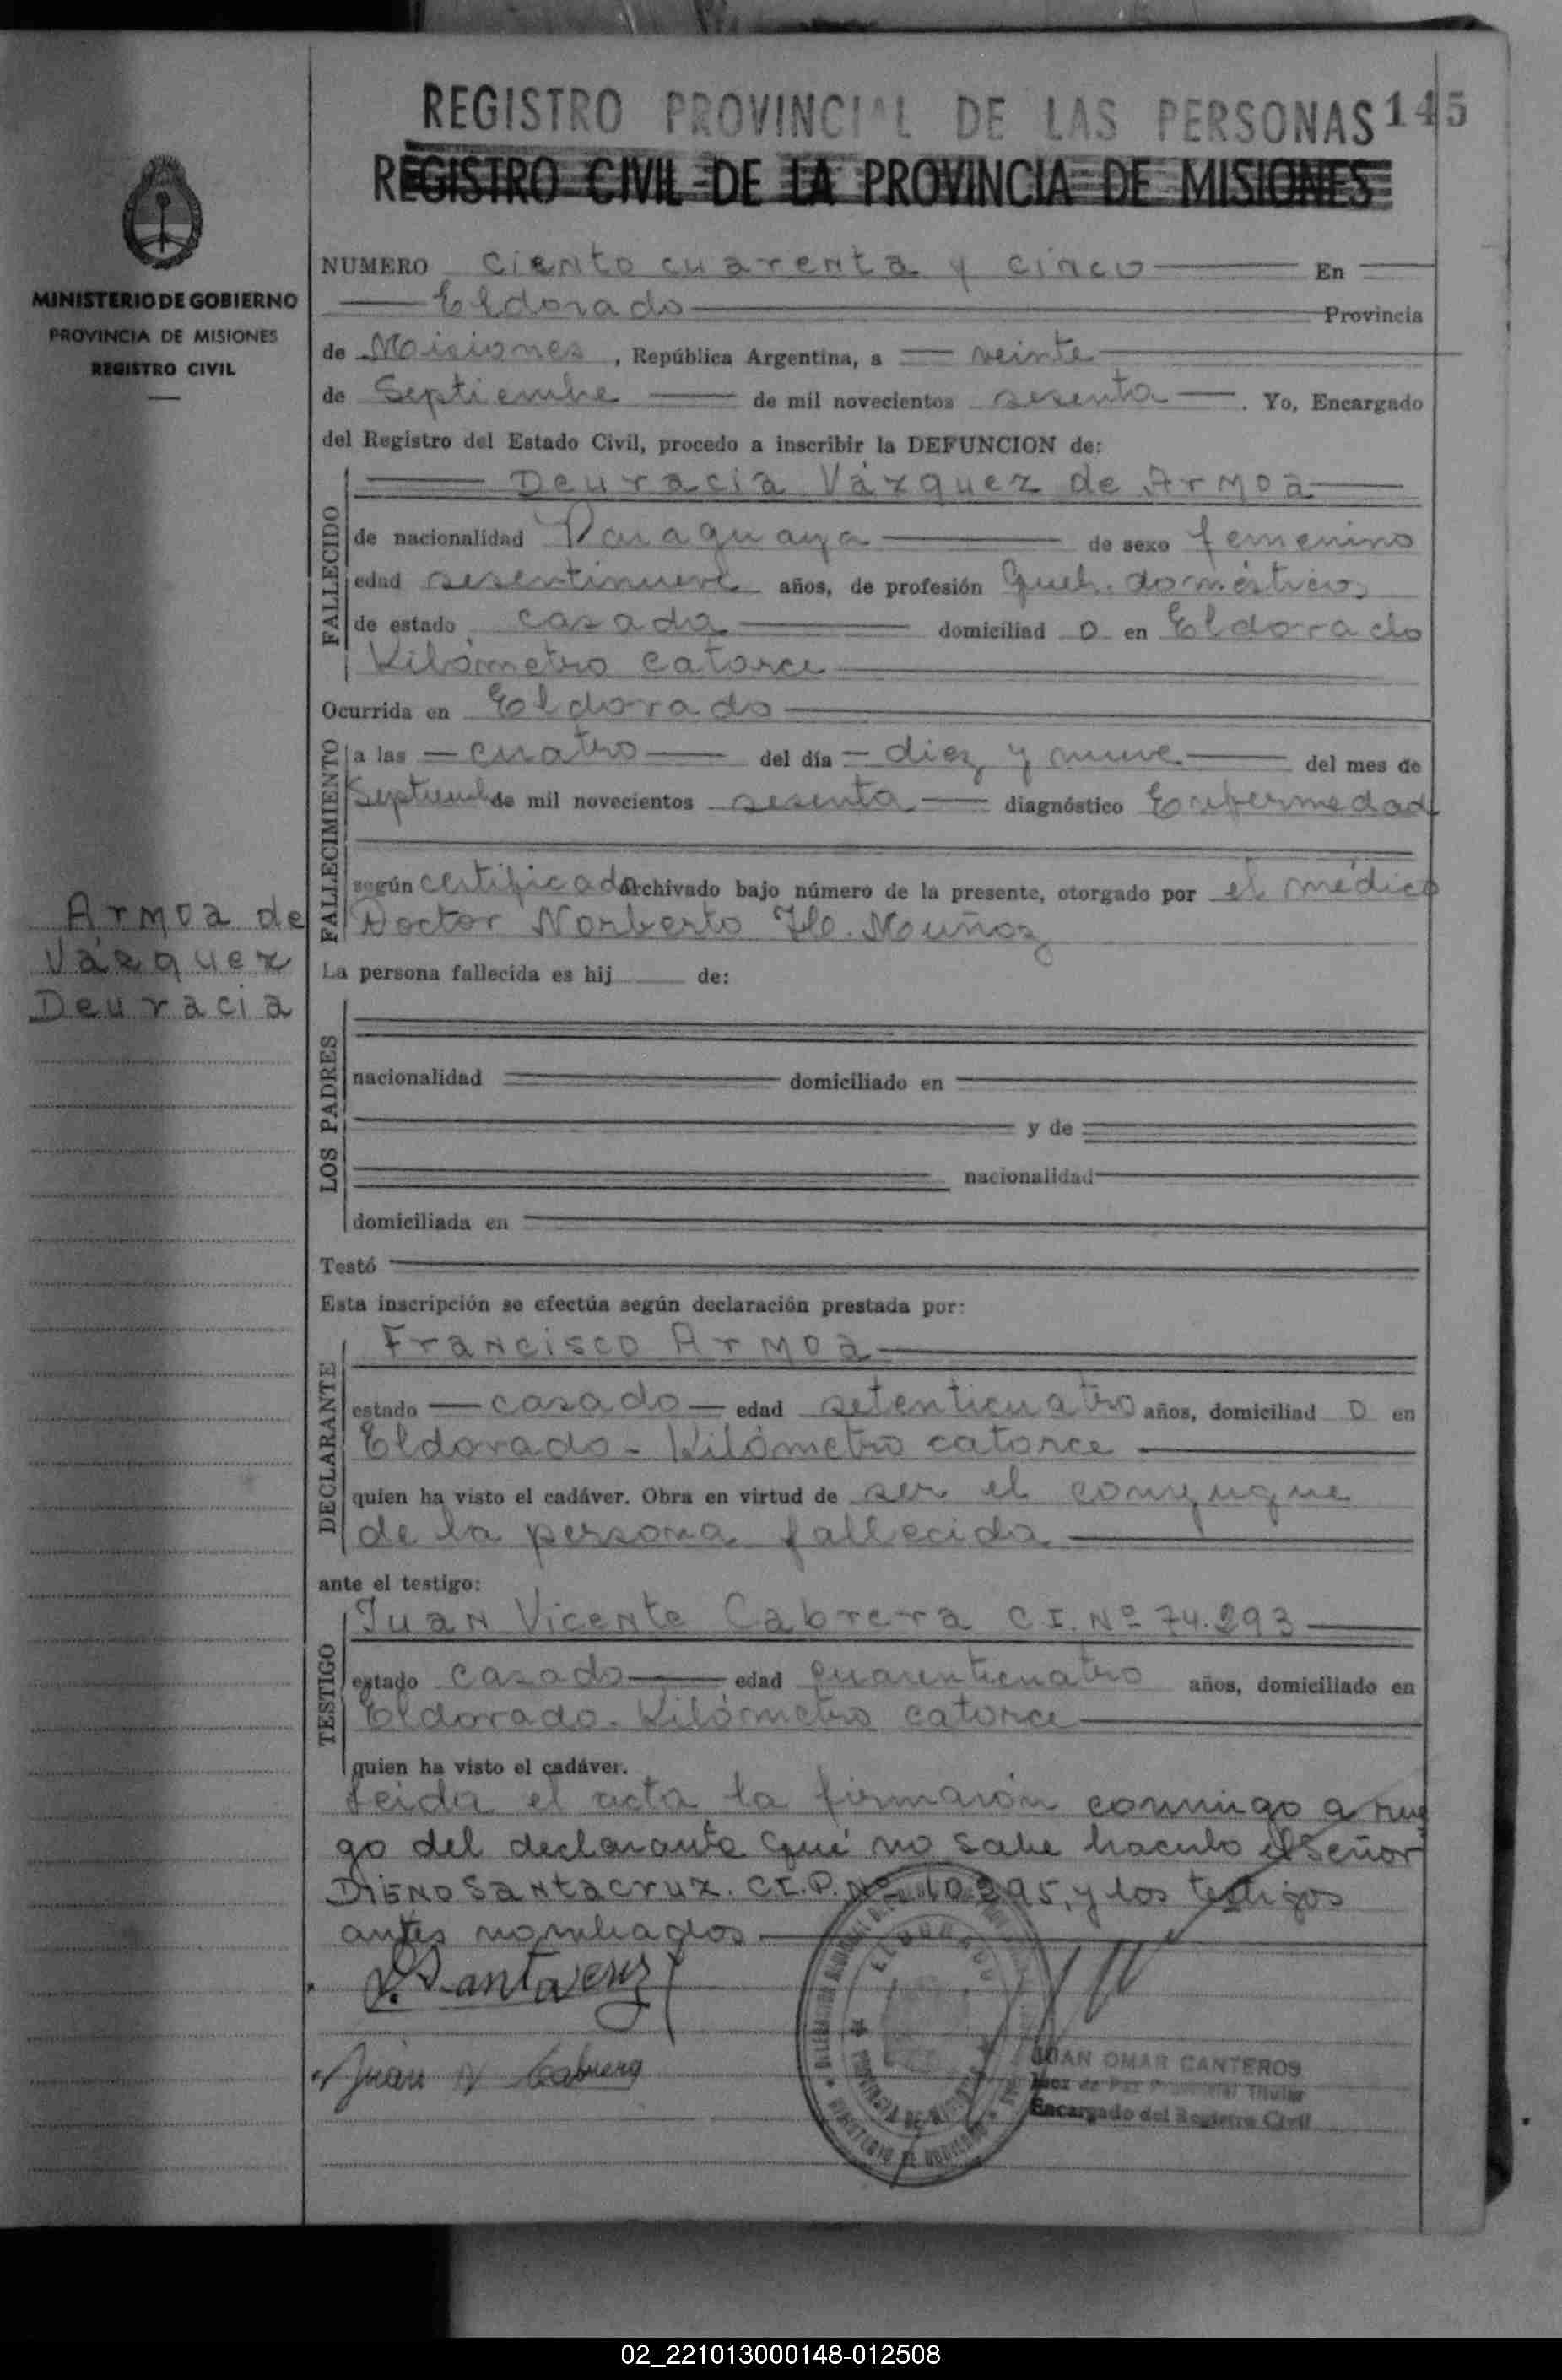 REGISTRO PROVINCIAL DE LAS PERSONAS 145
REGISTRO CIVIL DE LA PROVINCIA DE MISIONES
MINISTERIO DE GOBIERNO
PROVINCIA DE MISIONES
REGISTRO CIVIL
NUMERO ciento cuarenta y cinco En
Eldorado Provincia
de Misiones, República Argentina, a veinte
de Septiembre de mil novecientos sesenta. Yo, Encargado
del Registro del Estado Civil, procedo a inscribir la DEFUNCION de:
FALLECIDO
Deuracia Vázquez de Armoa
de nacionalidad Paraguaya de sexo femenino
edad sesentinueve años, de profesión Queh. domésticos
de estado casada domiciliad o en Eldorado
Kilómetro catorce
Ocurrida en Eldorado
FALLECIMIENTO
a las cuatro del día diez y nueve del mes de
Septiembre de mil novecientos sesenta diagnóstico Enfermedad
según certificado archivado bajo número de la presente, otorgado por el médico
Doctor Norberto H. Muñoz
Armoa de
Vázquez
Deuracia
La persona fallecida es hij de:
LOS PADRES
nacionalidad domiciliado en
y de
nacionalidad
domiciliada en
Testó
Esta inscripción se efectúa según declaración prestada por:
DECLARANTE
Francisco Armoa
estado casado edad setenticuatro años, domiciliad o en
Eldorado - Kilómetro catorce
quien ha visto el cadáver. Obra en virtud de ser el conyugue
de la persona fallecida
ante el testigo:
TESTIGO
Juan Vicente Cabrera C.I. Nº 74.293
estado casado edad cuarenticuatro años, domiciliado en
Eldorado. Kilómetro catorce
quien ha visto el cadáver.
Leida el acta la firmarón conmigo a rue
go del declarante qué no sabe hacerlo el Señor
Santacruz. C.I.P. Nº 10.295, y los testigos
antes nombrados
Santacruz
Juan V Cabrera
ELDORADO
PROVINCIA DE MISIONES
MINISTERIO DE GOBIERNO
JUAN OMAR CANTEROS
Juez de Paz Provincial Titular
Encargado del Registro Civil
02_221013000148-012508